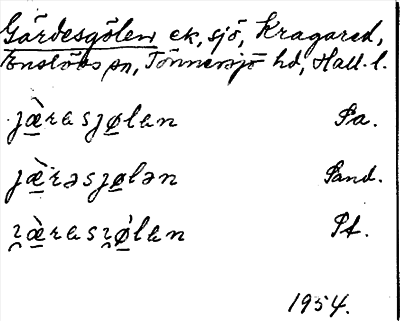 Gärdesgölen ek, sjö, Kragared,
Enslövs sn, Tönnersjö hd, Hall. l.
jæ̀rasjølan Pa.
jæ̀rəsjølən Pand.
Pt.
1954.